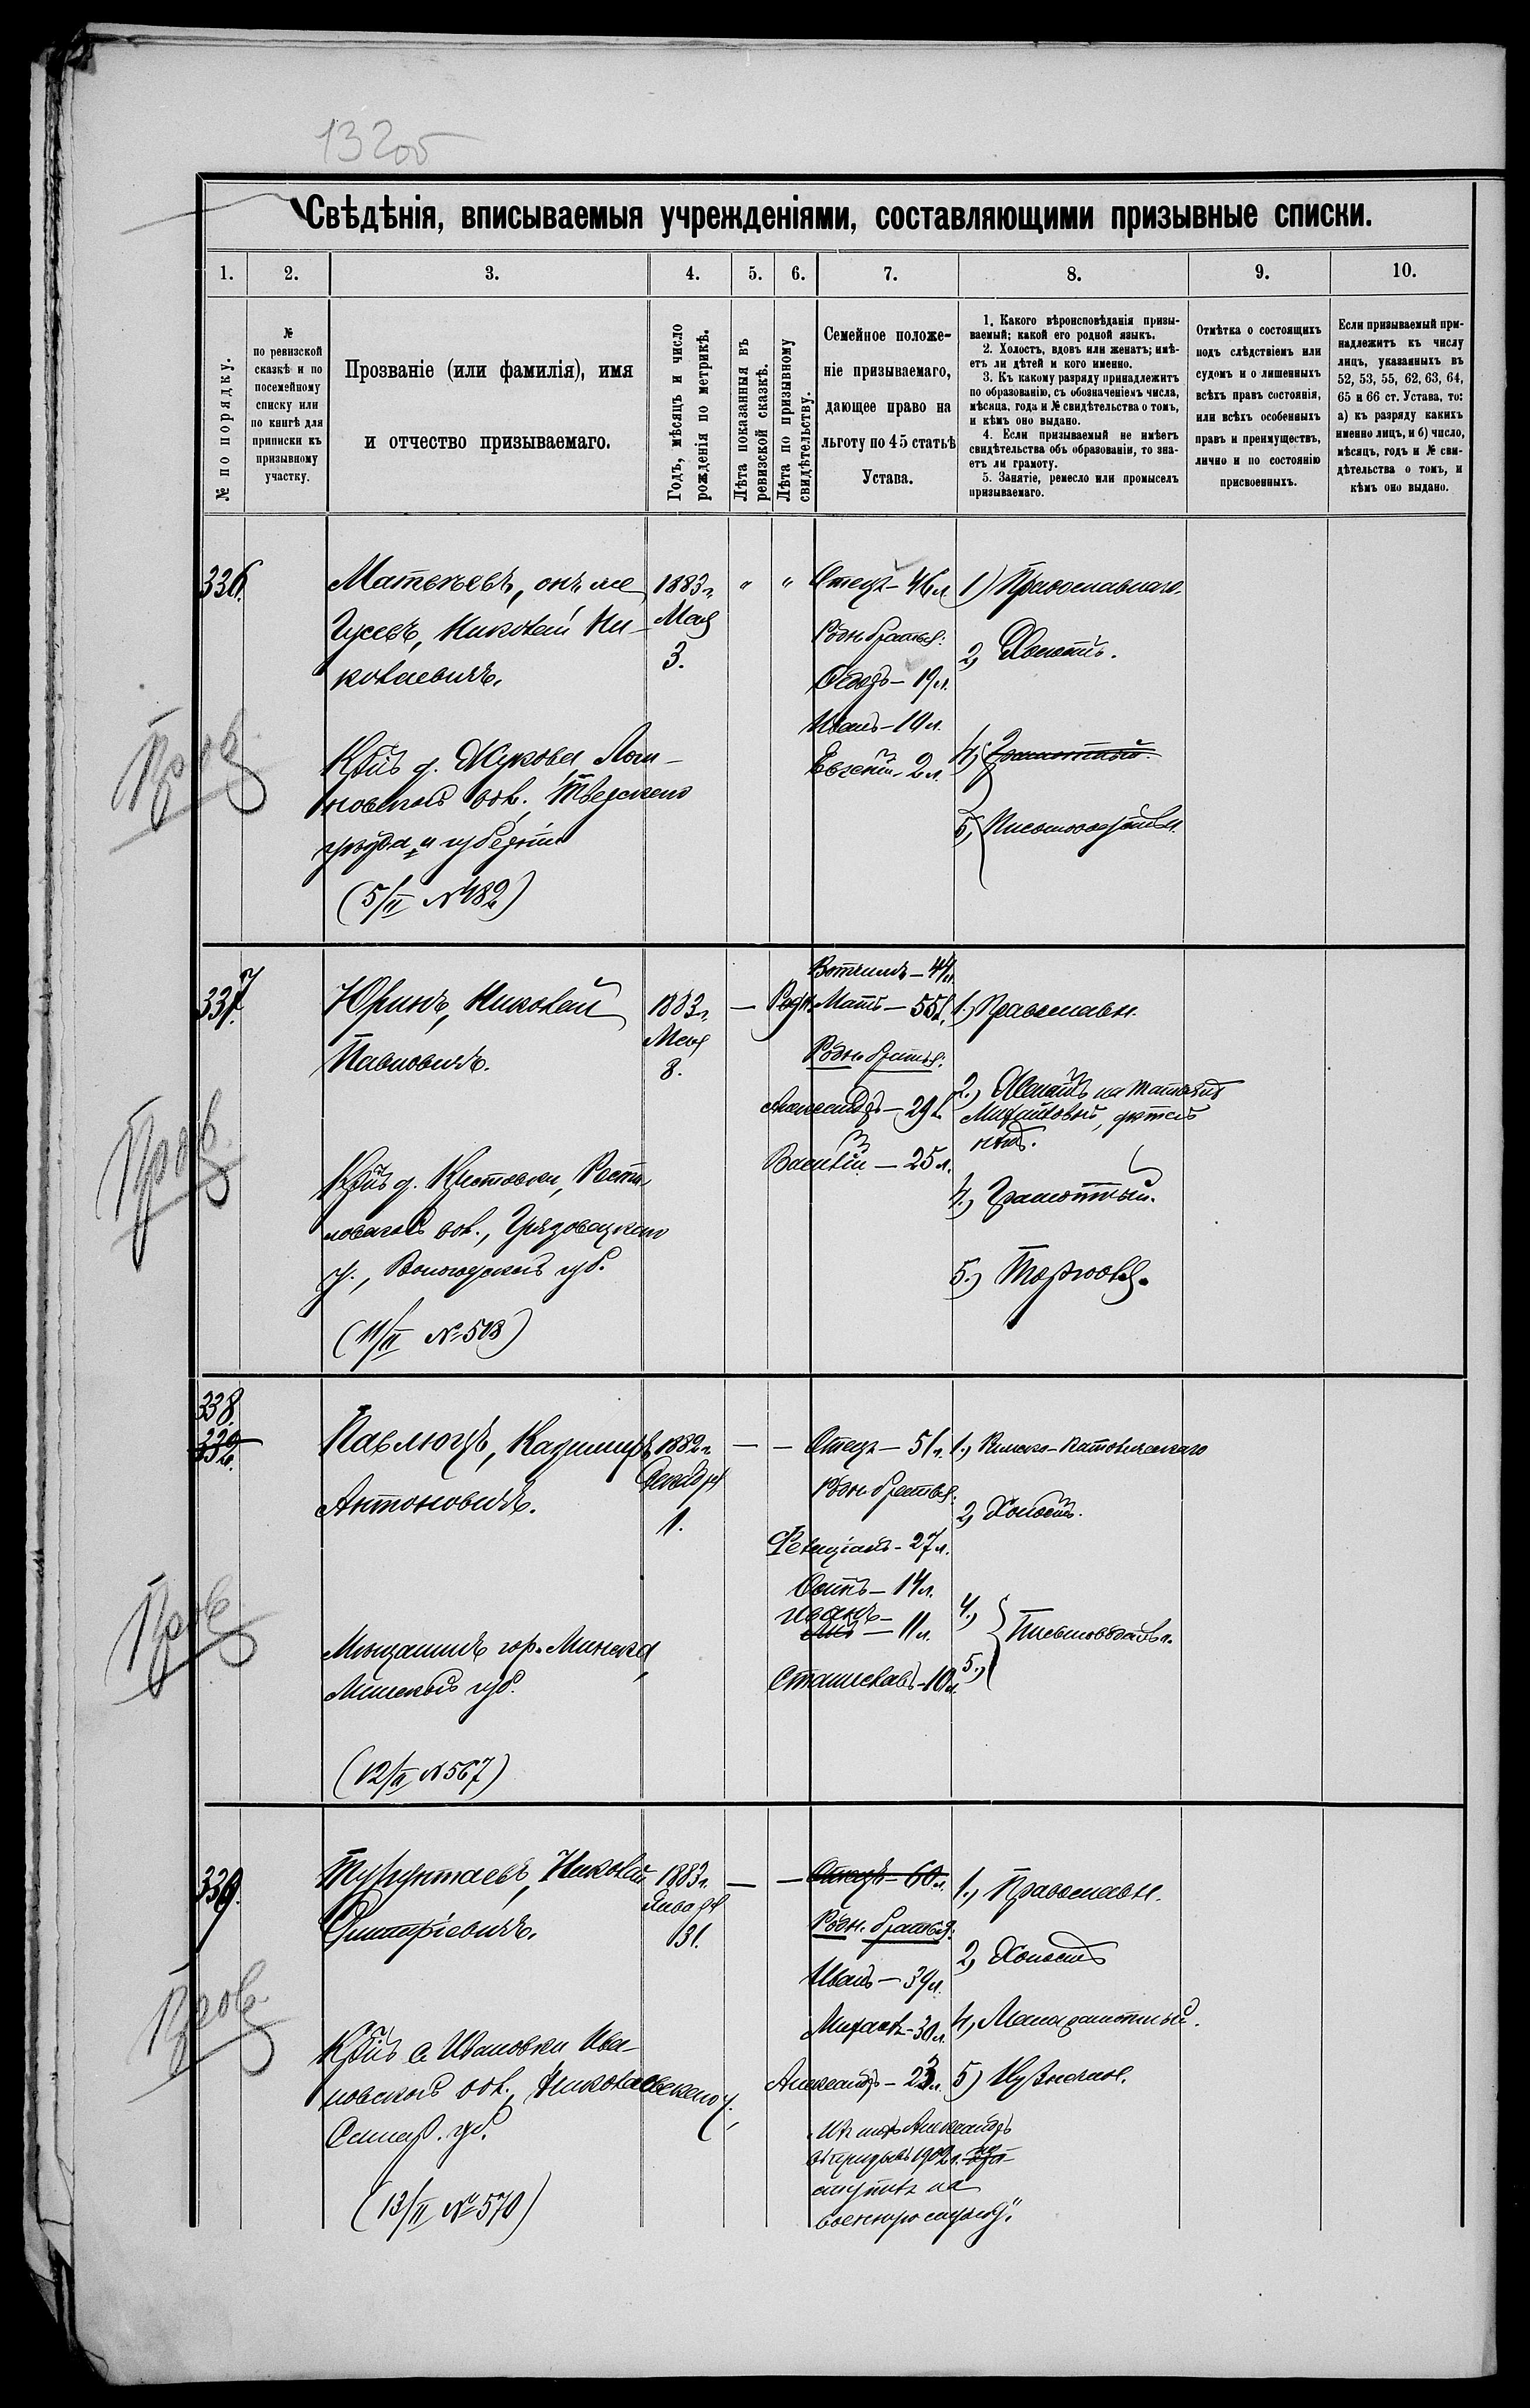 132об
Свѣдѣнія, вписываемыя учрежденіями, составляющими призывные списки.
1. 2. 3. 4. 5. 6. 7. 8. 9. 10.
№ по порядку.
№
по ревизской
сказкѣ и по
посемейному
списку или
по книгѣ для
приписки къ
призывному
участку.
Прозваніе (или фамилія), имя
и отчество призываемаго.
Годъ, мѣсяцъ и число
рожденія по метрикѣ.
Лѣта показанныя въ
ревизской сказкѣ.
Лѣта по призывному
свидѣтельству.
Семейное положе-
ніе призываемаго,
дающее право на
льготу по 45 статьѣ
Устава.
1. Какого вѣроисповѣданія призы-
ваемый; какой его родной языкъ.
2. Холостъ, вдовъ или женатъ; имѣ-
етъ ли дѣтей и кого именно.
3. Къ какому разряду принадлежитъ
по образованію, съ обозначеніемъ числа,
мѣсяца, года и № свидѣтельства о томъ,
и кѣмъ оно выдано.
4. Если призываемый не имѣетъ
свидѣтельства объ образованіи, то зна-
етъ ли грамоту.
5. Занятіе, ремесло или промыселъ
призываемаго.
Отмѣтка о состоящихъ
подъ слѣдствіемъ или
судомъ и о лишенныхъ
всѣхъ правъ состоянія,
или всѣхъ особенныхъ
правъ и преимуществъ,
лично и по состоянію
присвоенныхъ.
Если призываемый при-
надлежитъ къ числу
лицъ, указанныхъ въ
52, 53, 55, 62, 63, 64,
65 и 66 ст. Устава, то:
а) къ разряду какихъ
именно лицъ, и б) число,
мѣсяцъ, годъ и № сви-
дѣтельства о томъ, и
кѣмъ оно выдано.
336.
Матвѣевъ, онъ же
Гусевъ, Николай Ни-
колаевичъ.
Кр-нъ д. Жукова
вол. Тверского
уѣзда и губерніи
(5/II №482)
1883 г.
Мая
3.
" "
Отецъ – 46 л.
Родн. братья:
Ѳедоръ – 19 л.
Иванъ – 10 л.
Евгеній – 2 л.
1) Православнаго.
2) Холостъ.
4) Грамотный.
5) Письмоводитель.
Пров.
337.
Юринъ, Николай
Павловичъ.
Кр-нъ д.
вол., Грязовецкаго
у., Вологодской губ.
(11/II №508)
1883 г.
Мая
8.
—
Вотчимъ – 44 л.
Родн. Мать – 55 л.
Родн. братья:
Александръ – 29 л.
Василій – 25 л.
1.) Православн.
2.) Женатъ на Татьянѣ
Михайловой, дѣтей
нѣтъ.
4.) Грамотный.
5.) Торговля.
Пров.
338.
Павлюць, Казимиръ
Антоновичъ.
Мѣщанинъ гор. Минска,
Минской губ.
(12/II №567)
1882 г.
Декабря
1.
— —
Отецъ – 51 л.
Родн. братья:
Фелиціанъ – 27 л.
Осипъ – 14 л.
Иванъ –
– 11 л.
Станиславъ – 10 л.
1.) Римско-Католическаго
2) Холостъ.
4.)
5.) Письмоводитель.
Пров
339.
Турунтаевъ, Николай
Дмитріевичъ.
Кр-нъ с. Ивановки Ива-
новской вол., Николаевскаго у.
Самар. губ.
(13/II №570)
1883 г.
Января
31.
— —
Отецъ – 60 л.
Родн. братья:
Иванъ – 39 л.
Михаилъ – 30 л.
Александръ – 23 л.
Изъ нихъ Александръ
въ призывъ 1902 г. по-
ступилъ на
военную службу.
1.) Православн.
2) Холостъ
4) Малограмотный.
5)
Пров.